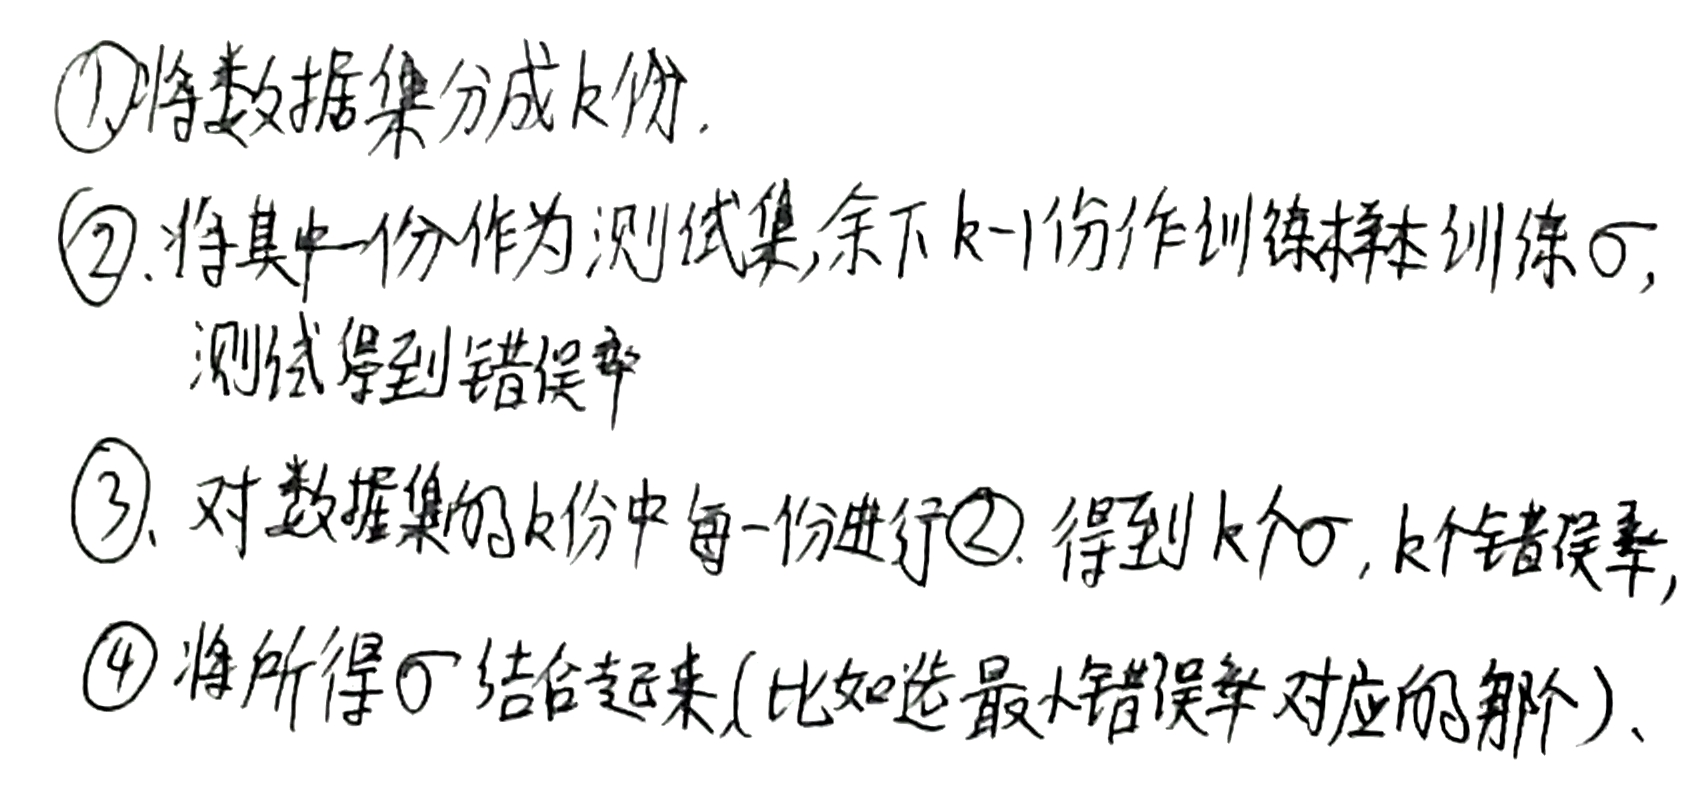 ①将数据集分成k份.
②.将其中一份作为测试集,余下k-1份作训练样本训练σ,
测试得到错误率
③、对数据集的k份中每一份进行②.得到k个σ,k个错误率,
④将所得σ结合起来(比如选最小错误率对应的那个)、